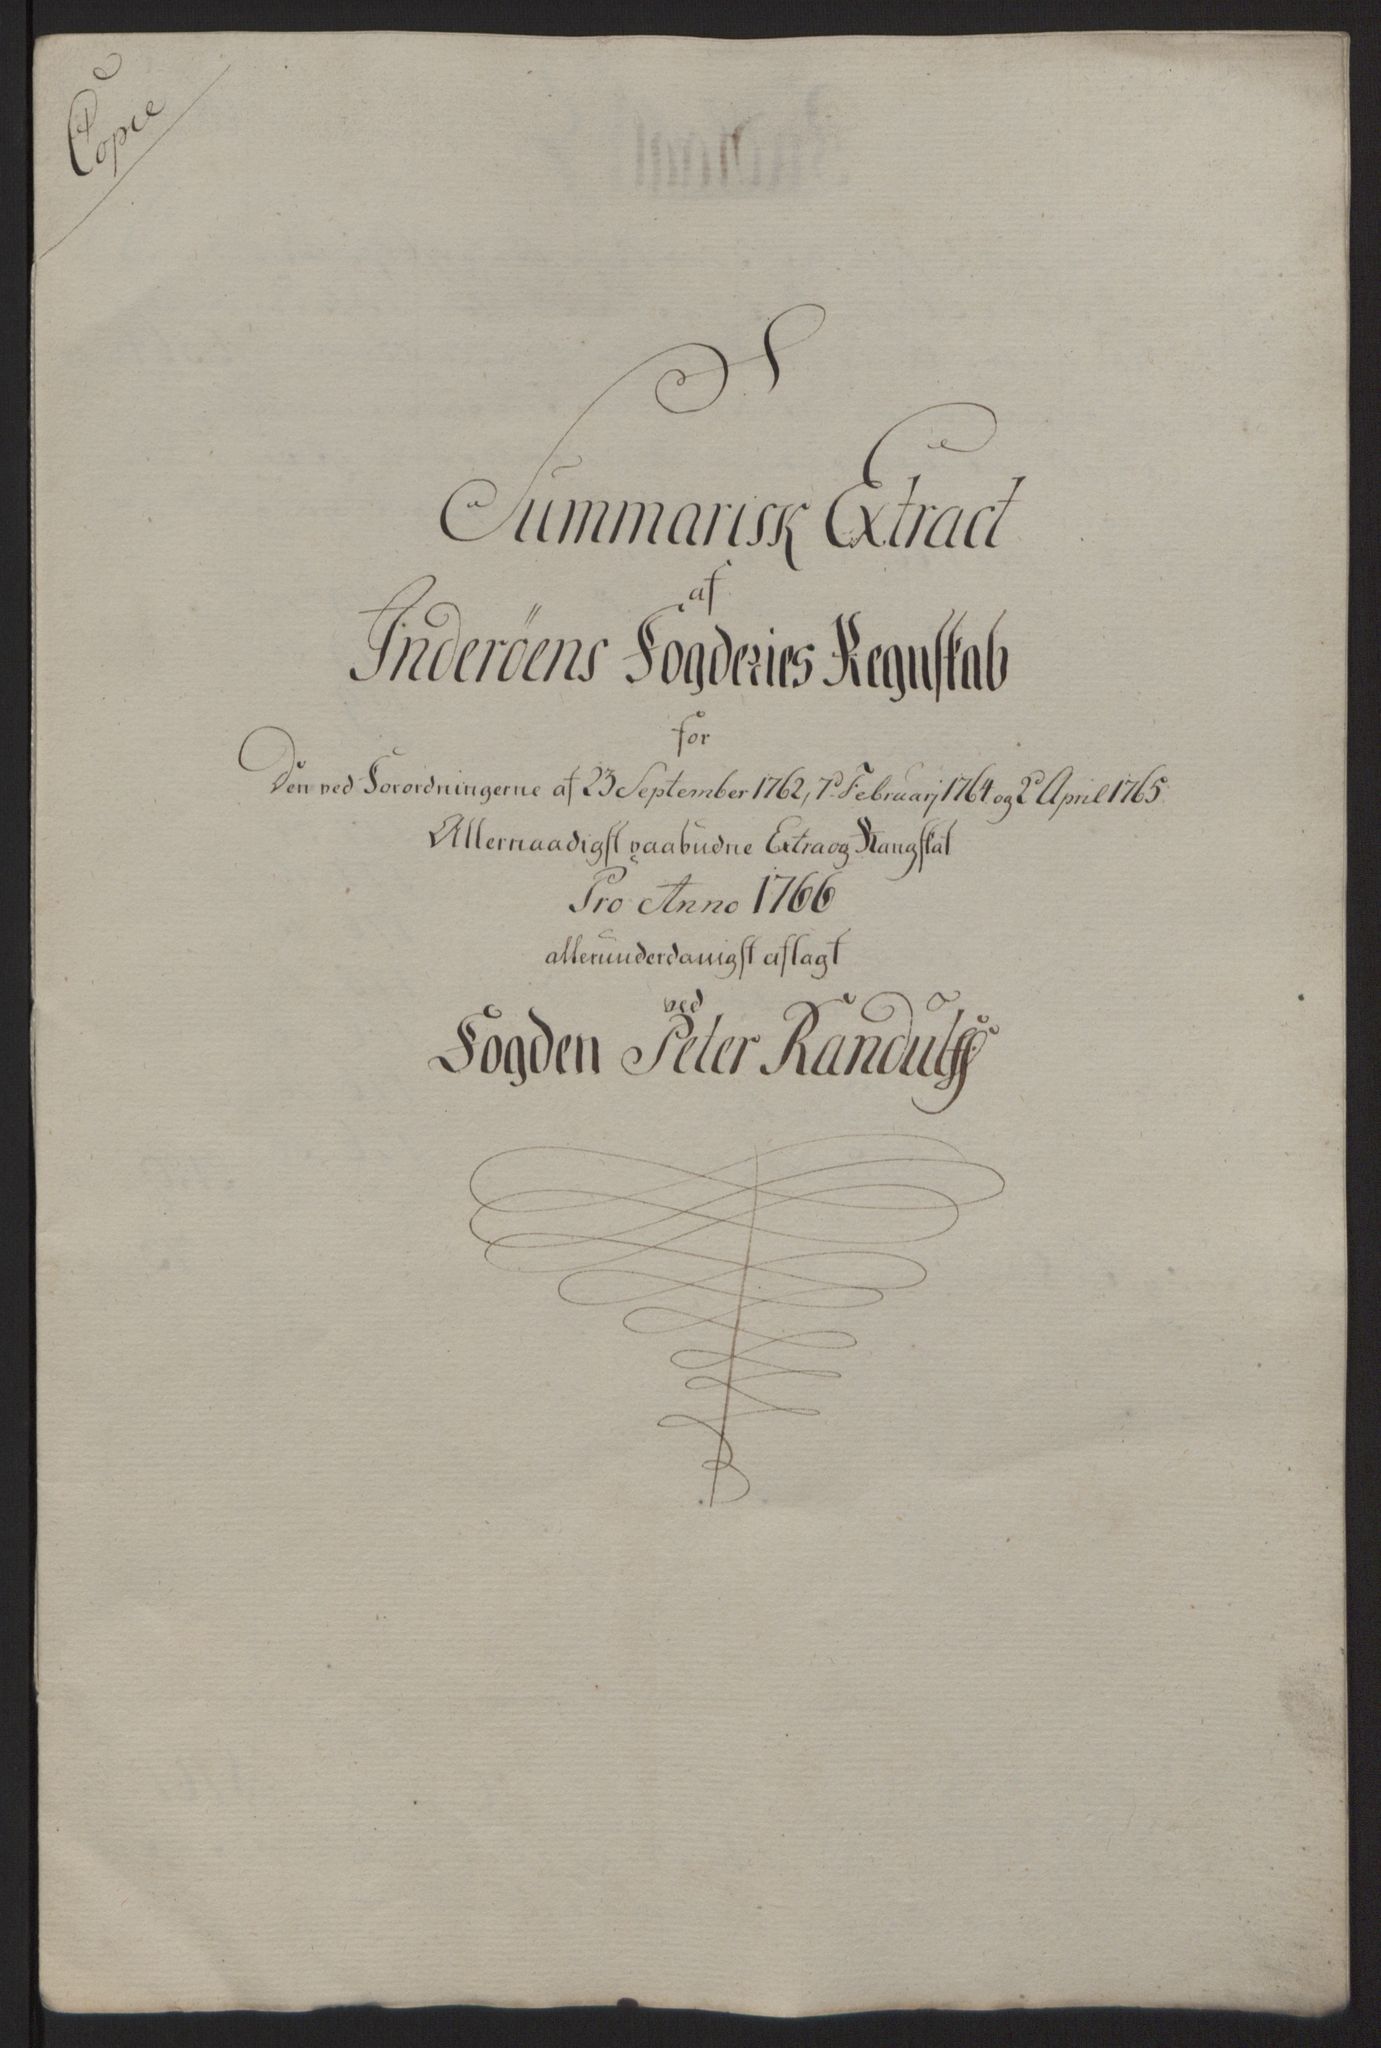 Copie
Summarisk Extract
af
Inderöens Fogderies Regnskab
for
Den ved Forordningerne af 23 September 1762, 7d Februarj 1764 og 2d April 1765
Allernaadigst paabudne Extra og Rangskat
Pro Anno 1766
allerunderdanigst aflagt
ved
Fogden Peter Randulff